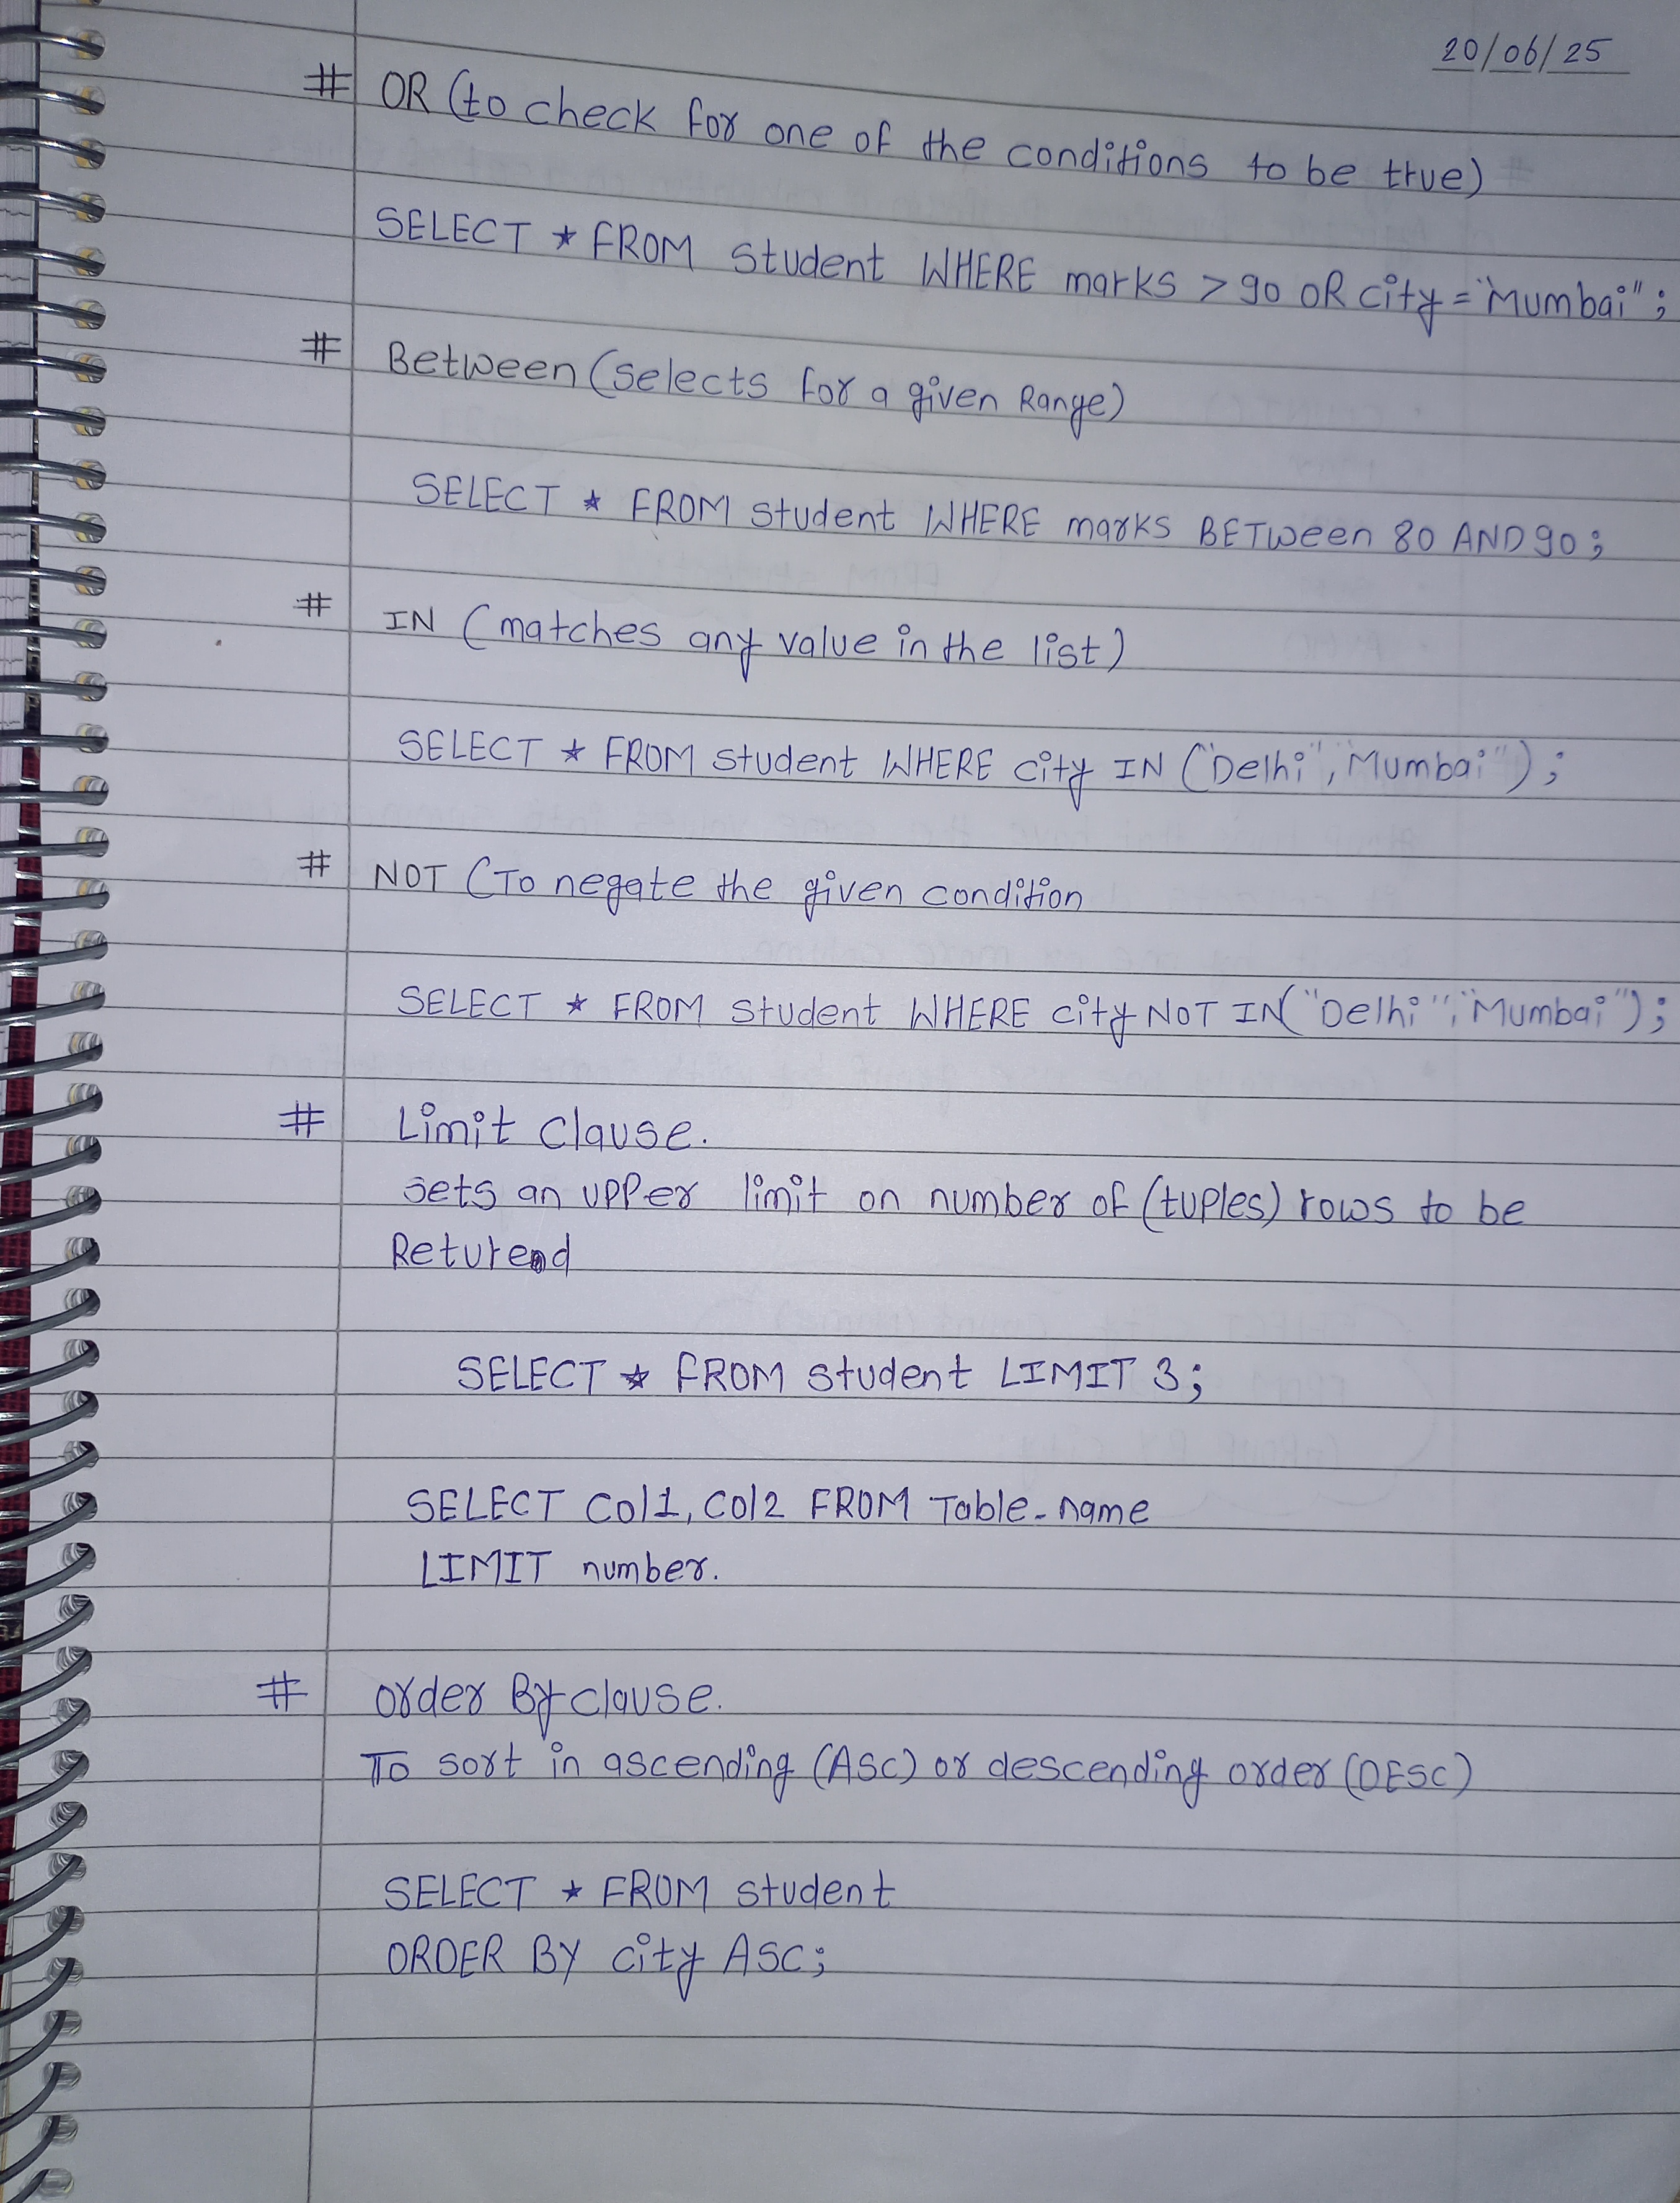 20/06/25
# OR (to check for one of the conditions to be true)
SELECT * FROM student WHERE marks > 90 OR city = "Mumbai";
# Between (selects for a given Range)
SELECT * FROM student WHERE marks BETWeen 80 AND 90;
# IN (matches any value in the list)
SELECT * FROM student WHERE city IN ("Delhi", "Mumbai");
# NOT (To negate the given condition
SELECT * FROM student WHERE city NOT IN ("Delhi", "Mumbai");
# Limit Clause.
sets an upper limit on number of (tuples) rows to be
Returend
SELECT * FROM student LIMIT 3;
SELECT Col1, Col2 FROM Table-name
LIMIT number.
# order By clause.
To sort in ascending (ASC) or descending order (DESC)
SELECT * FROM student
ORDER BY city ASC;